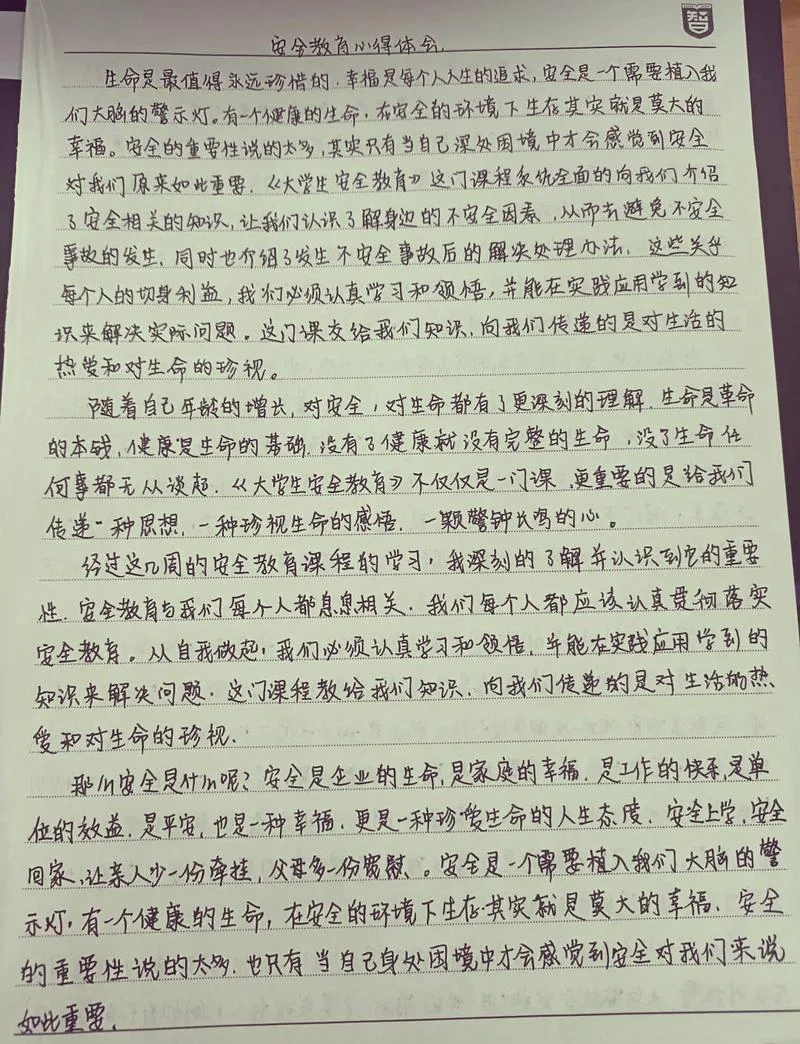 智
安全教育心得体会.
生命是最值得永远珍惜的.幸福是每个人人生的追求,安全是一个需要植入我
们大脑的警示灯。有一个健康的生命.在安全的环境下生存其实就是莫大的
幸福。安全的重要性说的太多,其实只有当自己深处困境中才会感觉到安全
对我们原来如此重要.《大学生安全教育》这门课程系统全面的向我们介绍
了安全相关的知识,让我们认识了解身边的不安全因素,从而去避免不安全
事故的发生.同时也介绍了发生不安全事故后的解决处理办法.这些关乎
每个人的切身利益,我们必须认真学习和领悟,并能在实践应用学到的知
识来解决实际问题。这门课教给我们知识.向我们传递的是对生活的
热爱和对生命的珍视。
随着自己年龄的增长,对安全,对生命都有了更深刻的理解.生命是革命
的本钱,健康是生命的基础.没有了健康就没有完整的生命,没了生命任
何事都无从谈起.《大学生安全教育》不仅仅是一门课,更重要的是给我们
传递一种思想.一种珍视生命的感悟.一颗警钟长鸣的心。
经过这几周的安全教育课程的学习,我深刻的了解并认识到它的重要
性.安全教育与我们每个人都息息相关.我们每个人都应该认真贯彻落实
安全教育。从自我做起,我们必须认真学习和领悟,并能在实践应用学到的
知识来解决问题.这门课程教给我们知识.向我们传递的是对生活的热
爱和对生命的珍视.
那么安全是什么呢?安全是企业的生命,是家庭的幸福.是工作的快乐,是单
位的效益.是平安,也是一种幸福.更是一种珍爱生命的人生态度.安全上学,安全
回家,让亲人少一份牵挂,父母多一份宽慰、。安全是一个需要植入我们大脑的警
示灯,有一个健康的生命,在安全的环境下生存.其实就是莫大的幸福.安全
的重要性说的太多.也只有当自己身处困境中才会感觉到安全对我们来说
如此重要.